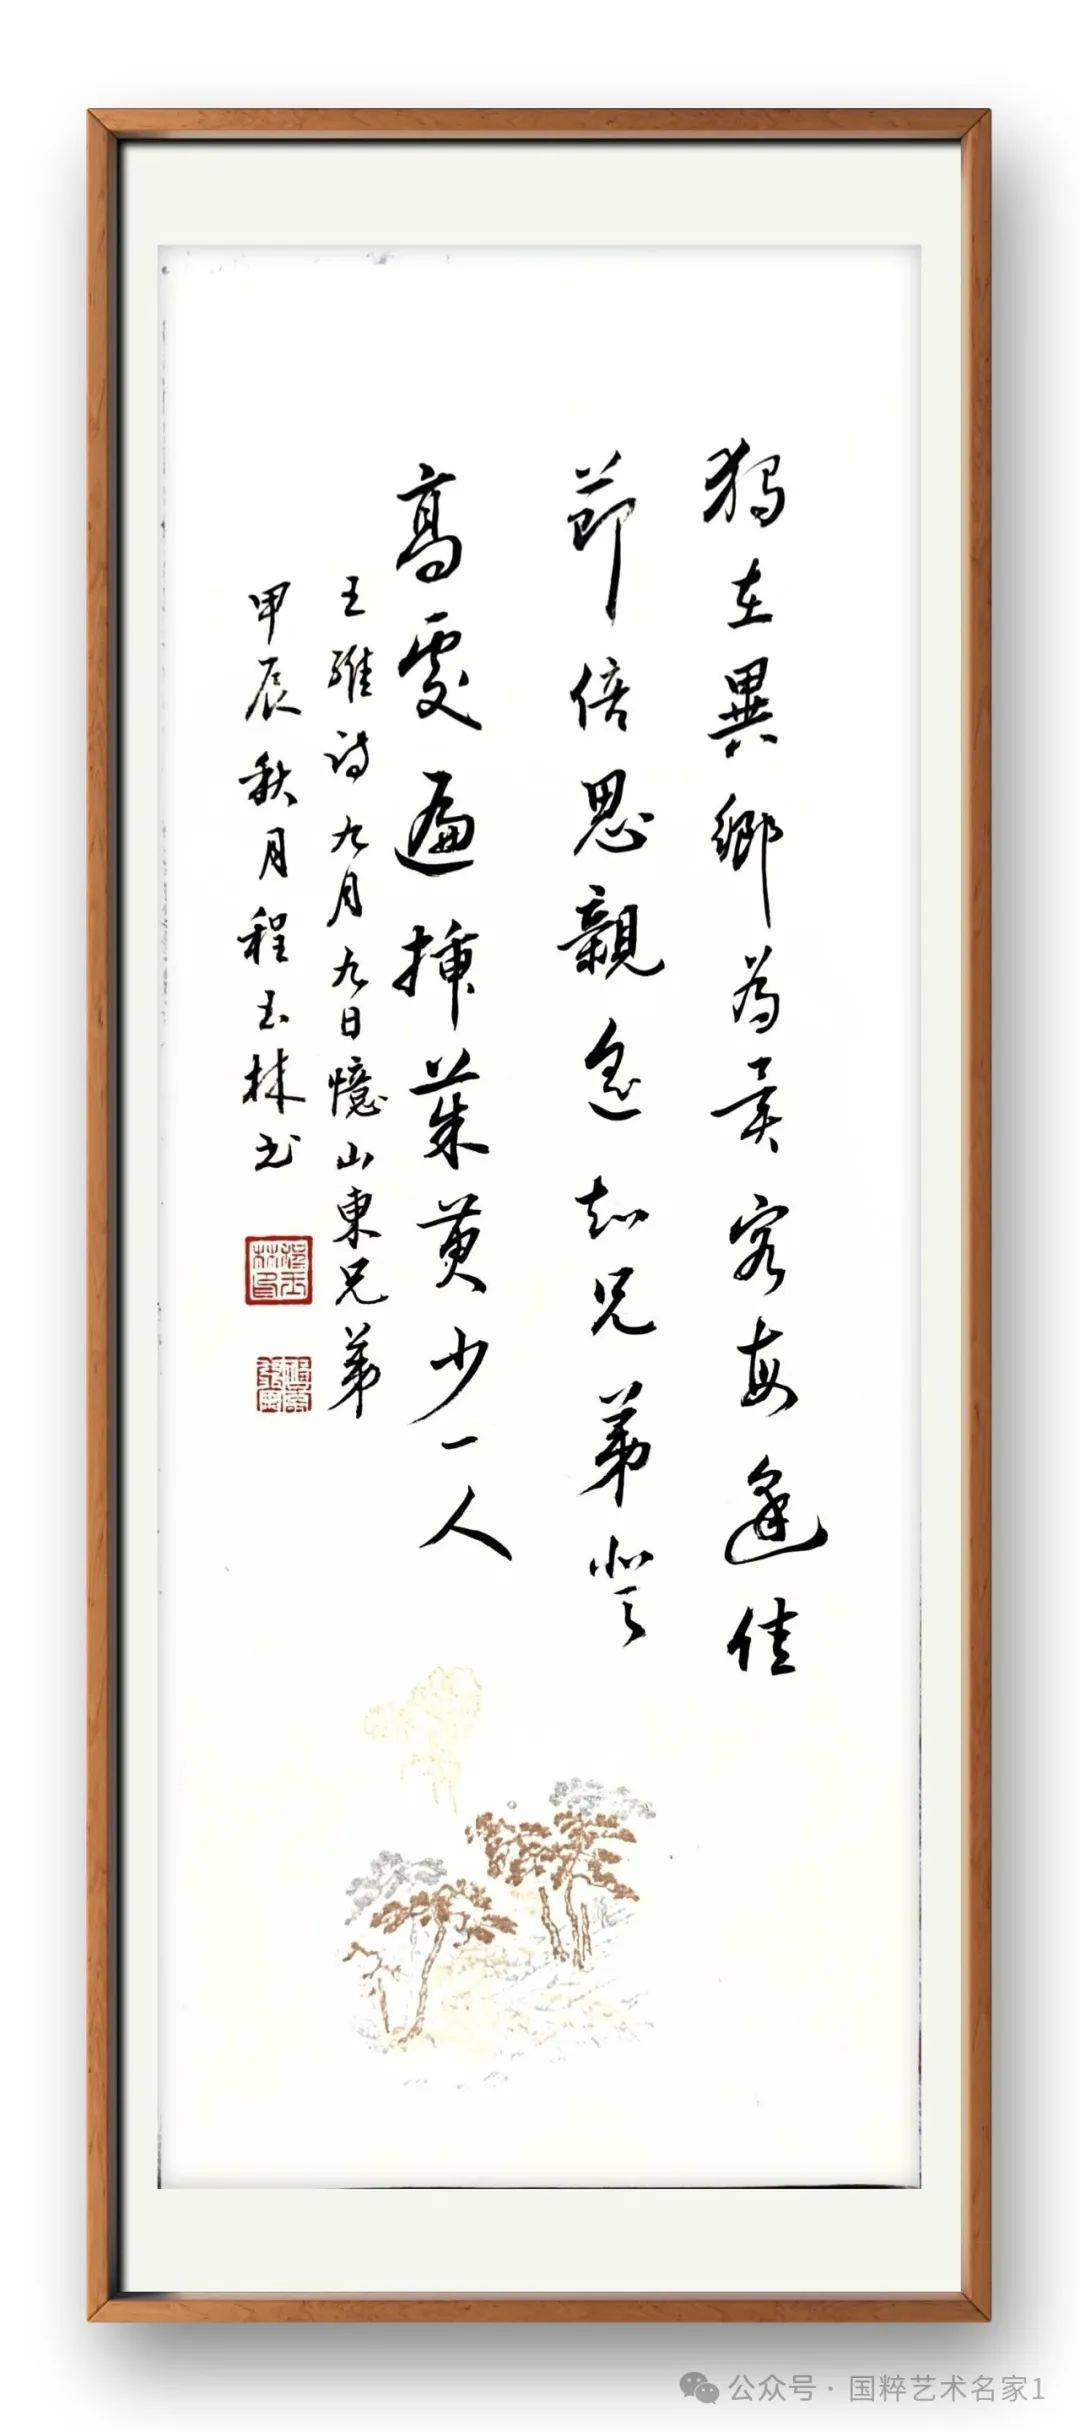 獨在異鄉為異客每逢佳
節倍思親遙知兄弟登
高處遍插茱萸少一人
王維诗九月九日憶山東兄弟
甲辰秋月程玉林书
公众号·国粹艺术名家1